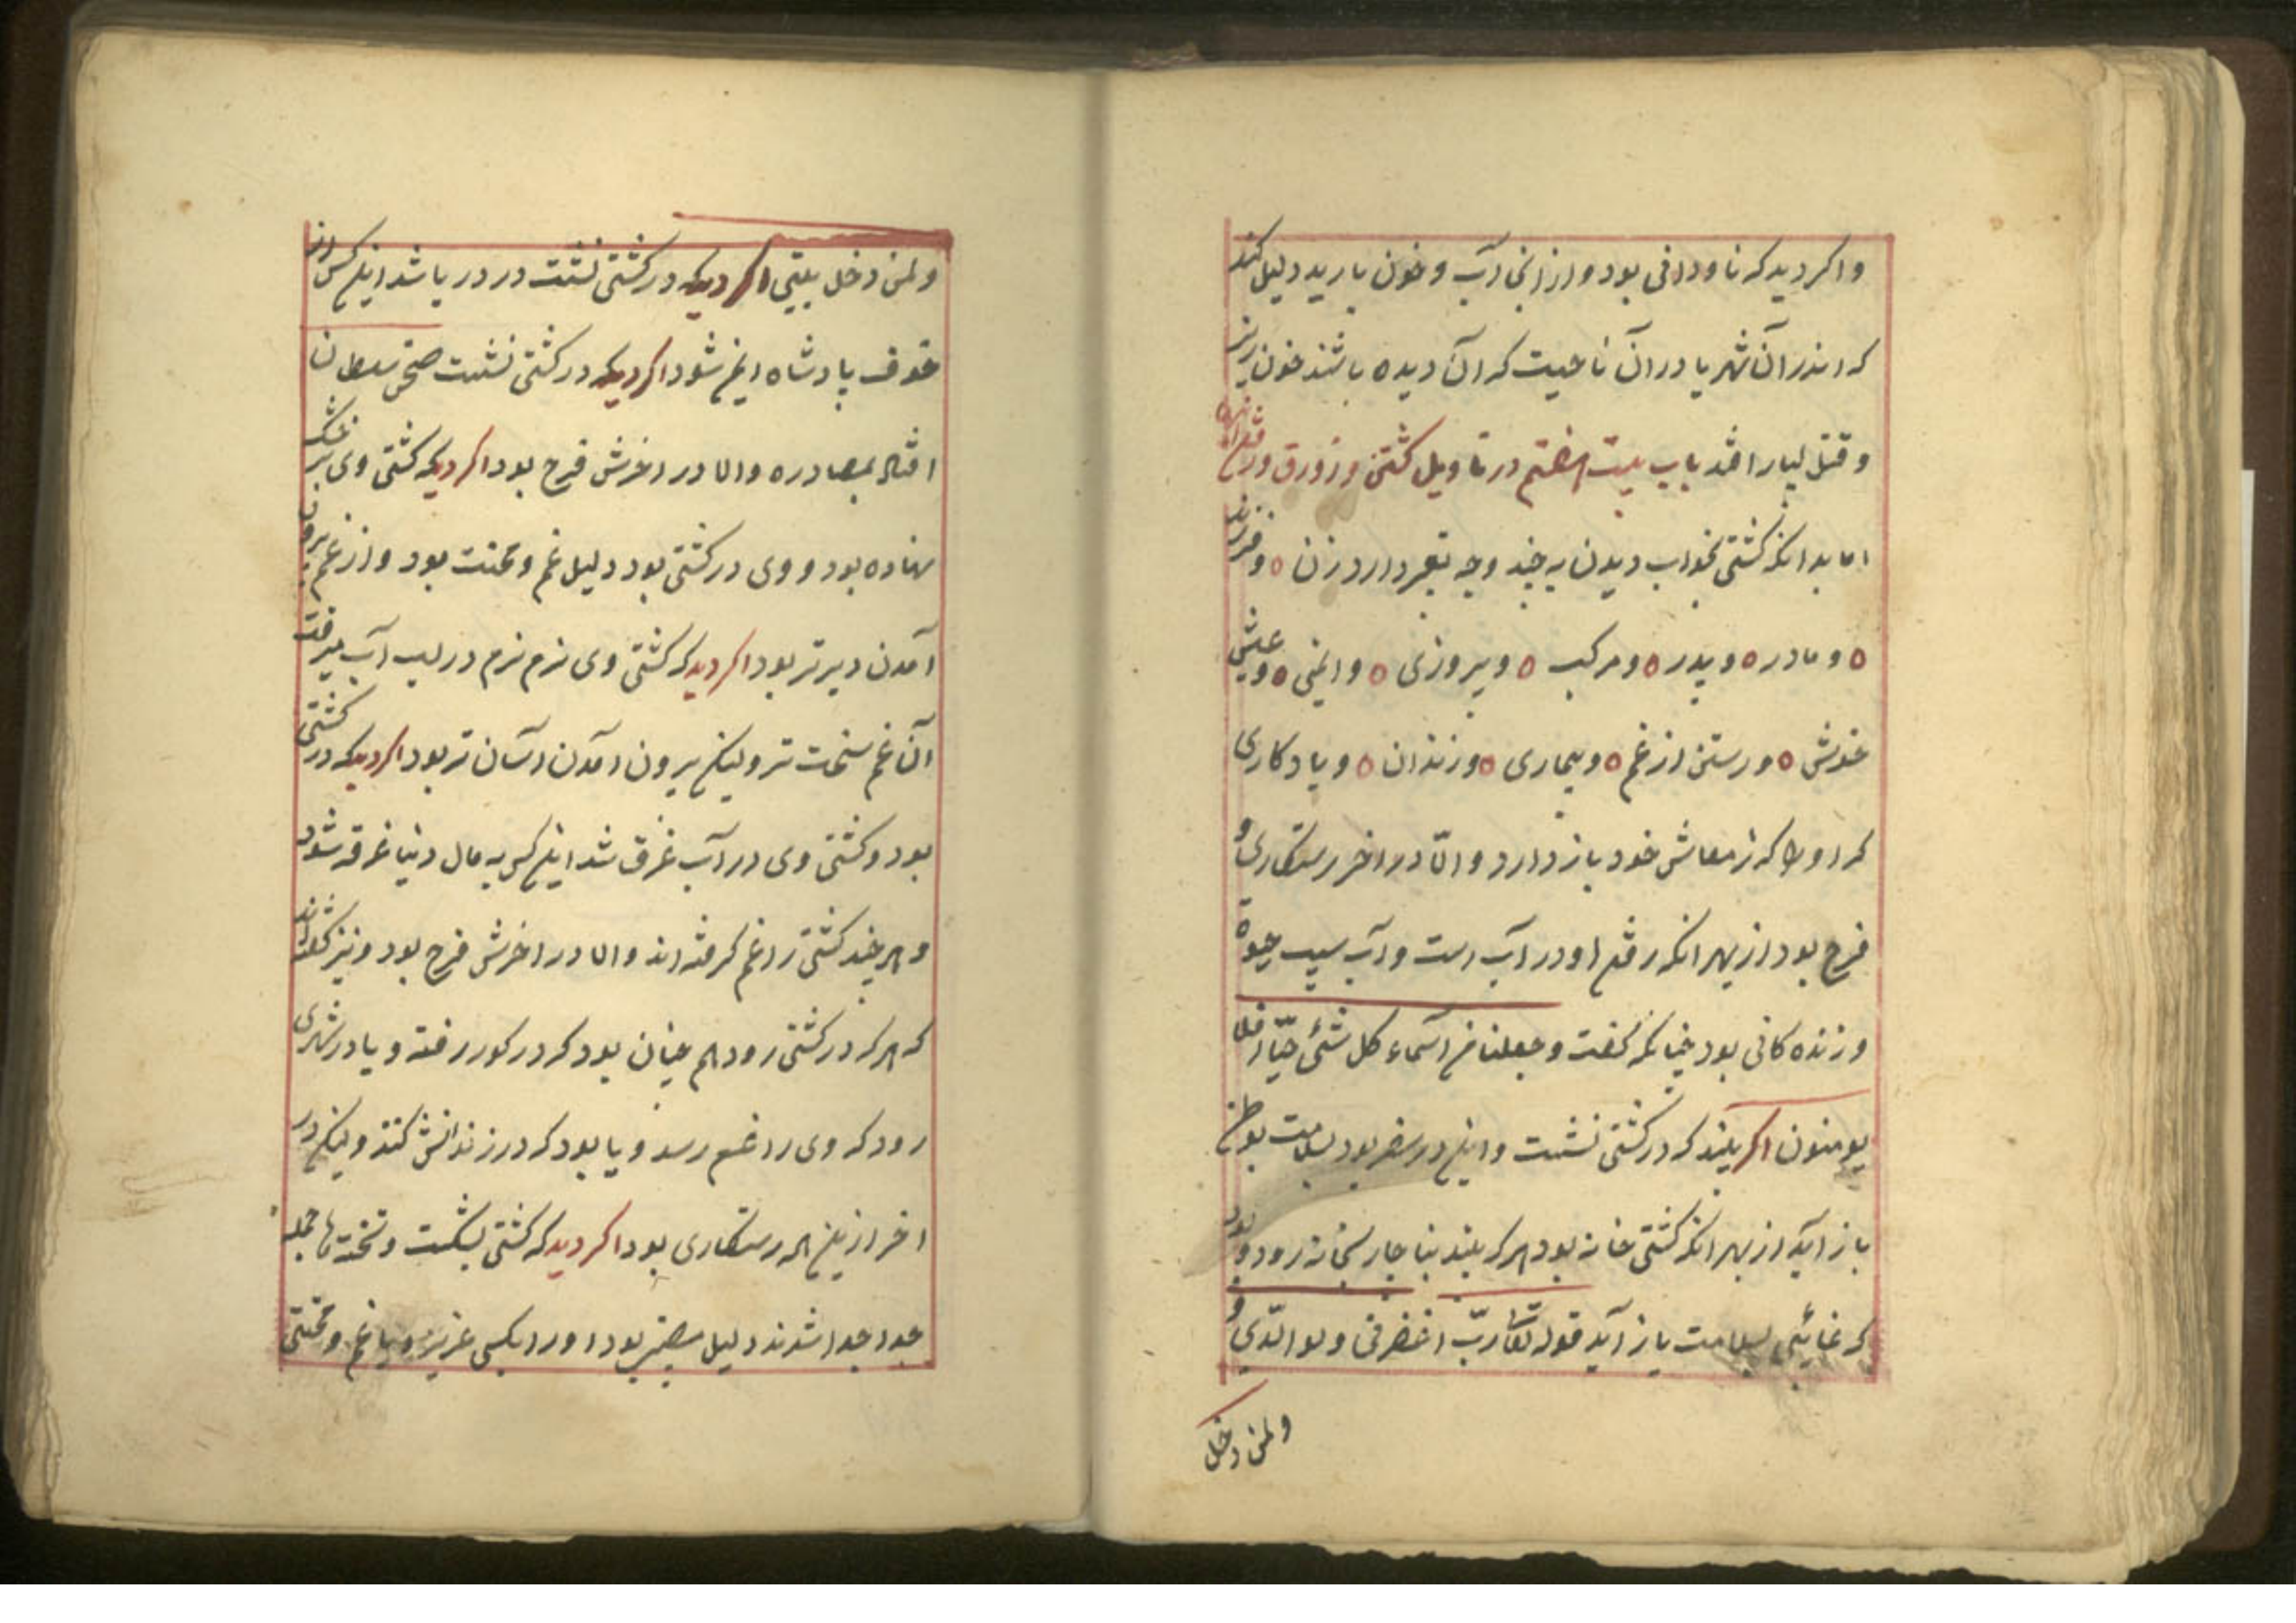 و اکر دید که ناودانی بود و از انجا آب و خون بارید دلیل کند
که اندر آن شهر یا در آن ناحیت که آن دیده باشند خون ریزش
و قتل بسیار افتد باب بیست هفتم در تاویل کشتی و زورق و رفتن
اما بدانکه کشتی بخواب دیدن به چند وجه تعبیر دارد زن ه و فرزند
ه و مادر ه و پدر ه و مرکب ه و پیروزی ه و ایمنی ه و عیش
خوش ه و رستن از غم ه و بیماری ه و زندان ه و یا دکاری
که او را که ز معاش خود باز دارد و الّا در اخر رستکاری و
فرج بود از بهر انکه رفتن او در آب است و آب سبب حیوة
و زنده کانی بود چنانکه کفت و جعلنا من آسماء کل شئی حیّا افلا
یومنون اکر بیند که در کشتی نشست و این در سفر بود بسلامت بوطن
باز آید از بهر انکه کشتی خانه بود هر که بیند بناچار بخانه رود و بود
که غائبی بسلامت باز آید قوله تعا ربّ اغفر لی و لوالدّی و
ولمن دخل
ولمن دخل بیتی اکر دید که در کشتی نشست در دریا شد این کس از
خوف پادشاه ایمن شود اکر دید که در کشتی نشست صحبت سلطان
افتد بمصادره و الا در اخرش فرج بود اکر دید که کشتی وی بر خشک
نهاده بود و وی در کشتی بود دلیل غم و محنت بود و از غم بیرون
آمدن دیرتر بود اکر دید که کشتی وی نرم نرم در لب آب میرفت
آن غم سخت تر ولیکن بیرون آمدن آسان تر بود اکر دید که در کشتی
بود و کشتی وی در آب غرق شد این کس به مال دنیا غرقه شود
و هر چند کشتی را غم کرفته اند و الا در اخرش فرج بود و نیز کفته اند
که هر که در کشتی رود هم چنان بود که در کور رفته و یا در شهری
رود که وی را غم رسد و یا بود که در زندانش کنند ولیکن در
اخر ازین همه رستکاری بود اکر دید که کشتی بشکست و تخته ها جمله
جدا جدا شدند دلیل مصیبتی بود او را بکسی عزیز و یا غم و محنتی